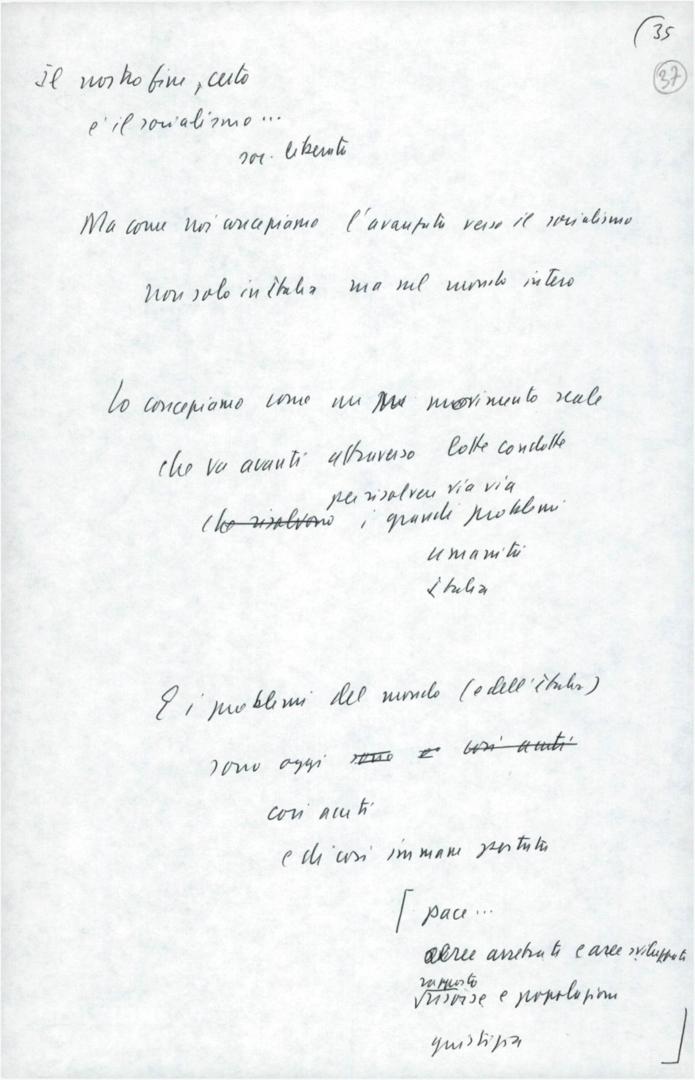 35
37
Il nostro fine, certo
e' il socialismo...
soc. liberato
Ma come noi concepiamo l'avanzata verso il socialismo
non solo in Italia ma nel mondo intero
Lo concepiamo come un movimento reale
che va avanti attraverso lotte condotte
per risolvere via via
che risolvono i grandi problemi
umanità
Italia
E i problemi del mondo (e dell'Italia)
sono oggi sono e così acuti
così acuti
e di così immane portata
[ pace...
aree arretrate e aree sviluppate
rapporto
risorse e popolazioni
giustizia ]